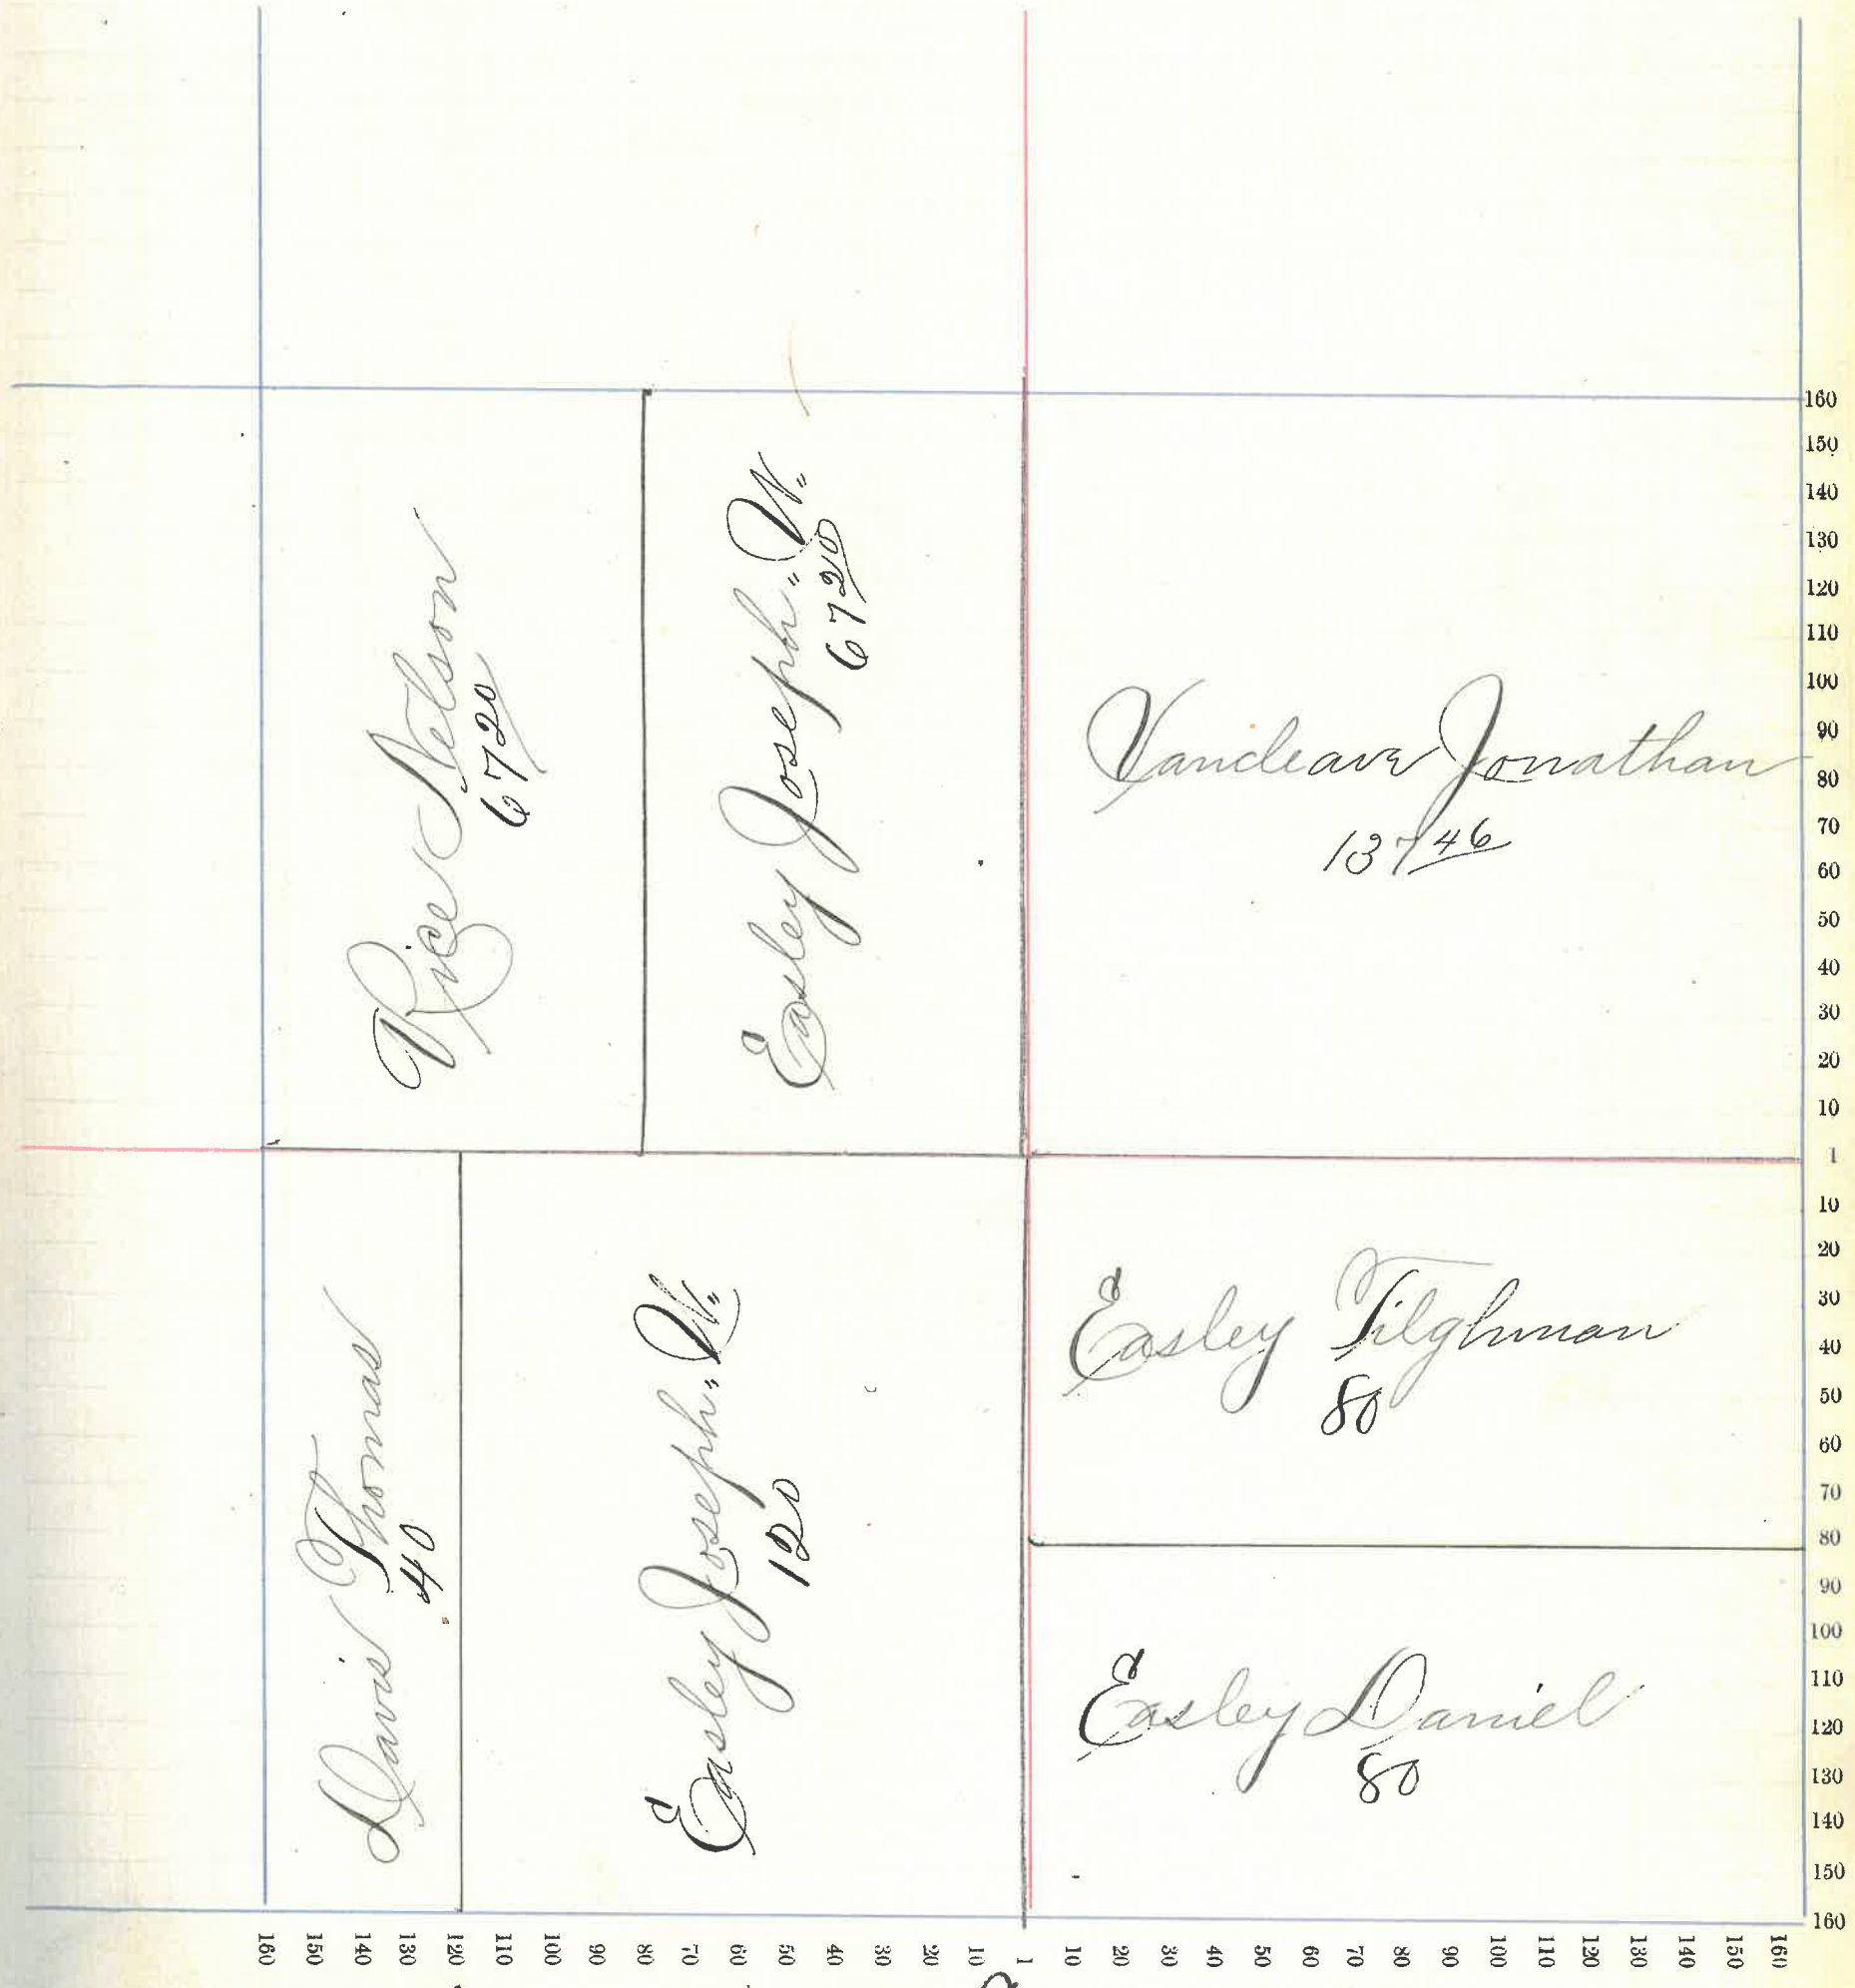 Rice Nelson
67 20
Easley Joseph " W. "
67 20
Vancleave Jonathan
137 46
Davis Thomas
40
Easley Joseph " W. "
120
Easley Tilghman
80
Easley Daniel
80
160
150
140
130
120
110
100
90
80
70
60
50
40
30
20
10
1
10
20
30
40
50
60
70
80
90
100
110
120
130
140
150
160
160 150 140 130 120 110 100 90 80 70 60 50 40 30 20 10 1 10 20 30 40 50 60 70 80 90 100 110 120 130 140 150 160